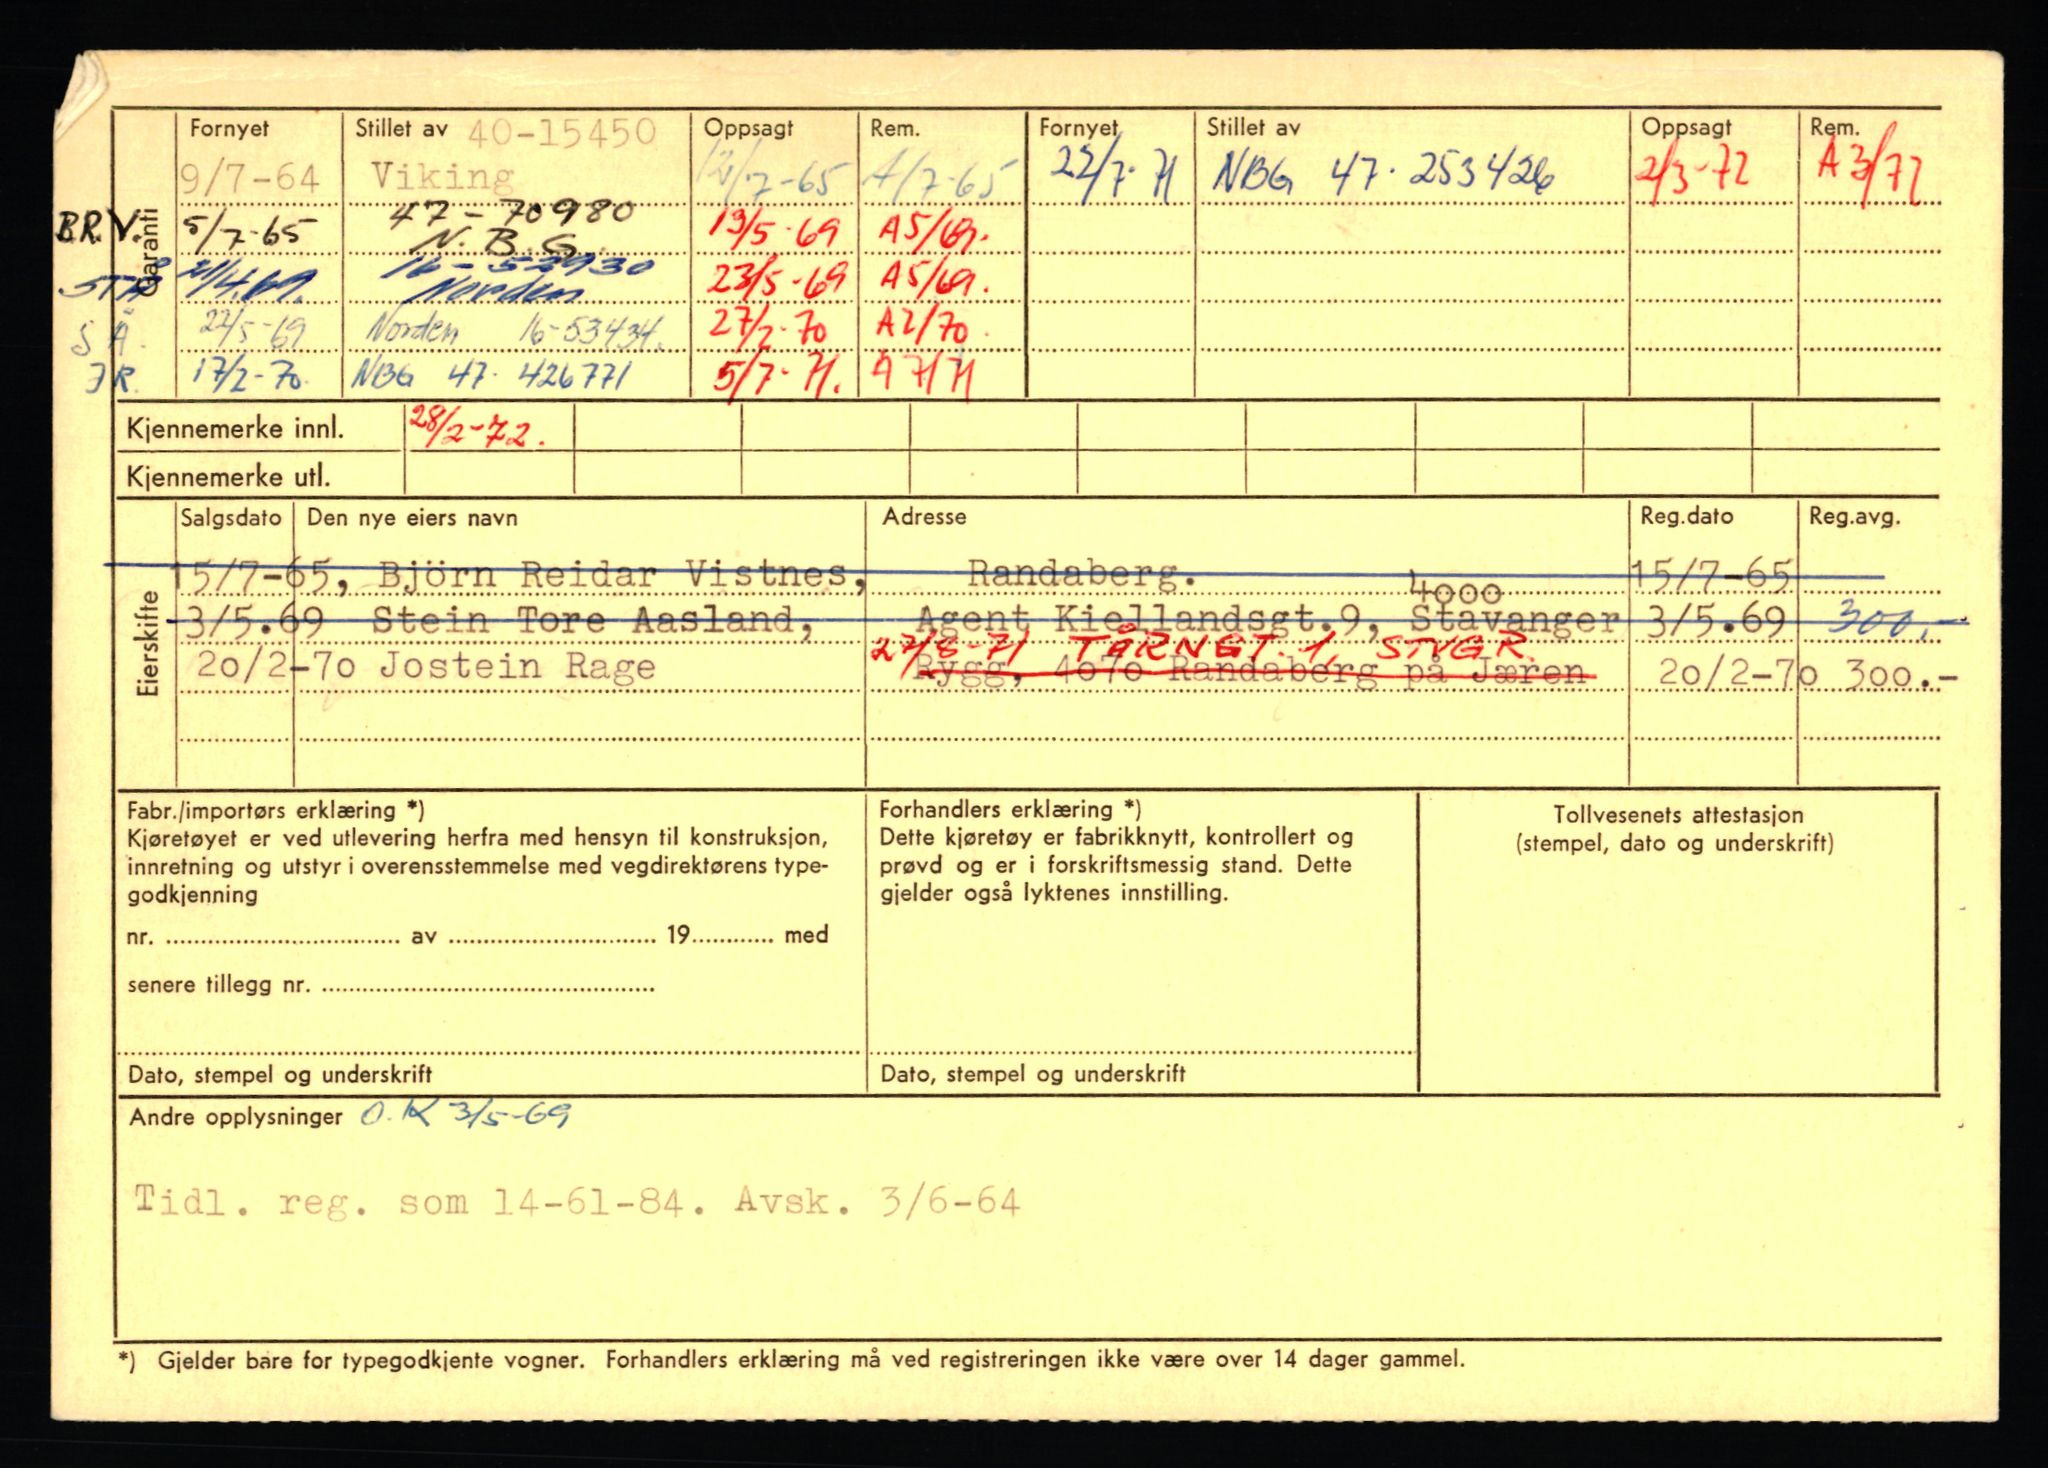 Garanti
Fornyet Stillet av 40-15450 Oppsagt Rem. Fornyet Stillet av Oppsagt Rem.
9/7-64 Viking 12/7-65 A/7-65 22/7-71 NBG 47-253426 2/3-72 A 3/72
B.R.V. 5/7-65 47-70980 N.B.G. 13/5-69 A5/69.
STA 21/4.69. Norden 23/5-69 A5/69.
S Å. 22/5-69 Norden 16-53434. 27/2-70 A2/70
J R. 17/2-70. NBG 47-426771 5/7-71. A 7/71
Kjennemerke innl. 28/2-72.
Kjennemerke utl.
Eierskifte
Salgsdato Den nye eiers navn Adresse Reg.dato Reg.avg.
15/7-65, Björn Reidar Vistnes, Randaberg. 15/7-65
4000
3/5.69 Stein Tore Aasland, Agent Kiellandsgt.9, Stavanger 3/5.69 300.-
27/8-71 TÅRNGT. 1, STVGR.
20/2-70 Jostein Rage Rygg, 4070 Randaberg på Jæren 20/2-70 300.-
Fabr./importørs erklæring *)
Kjøretøyet er ved utlevering herfra med hensyn til konstruksjon,
innretning og utstyr i overensstemmelse med vegdirektørens type-
godkjenning
nr. av 19 med
senere tillegg nr.
Dato, stempel og underskrift
Forhandlers erklæring *)
Dette kjøretøy er fabrikknytt, kontrollert og
prøvd og er i forskriftsmessig stand. Dette
gjelder også lyktenes innstilling.
Dato, stempel og underskrift
Tollvesenets attestasjon
(stempel, dato og underskrift)
Andre opplysninger O.K 3/5-69
Tidl. reg. som 14-61-84. Avsk. 3/6-64
*) Gjelder bare for typegodkjente vogner. Forhandlers erklæring må ved registreringen ikke være over 14 dager gammel.